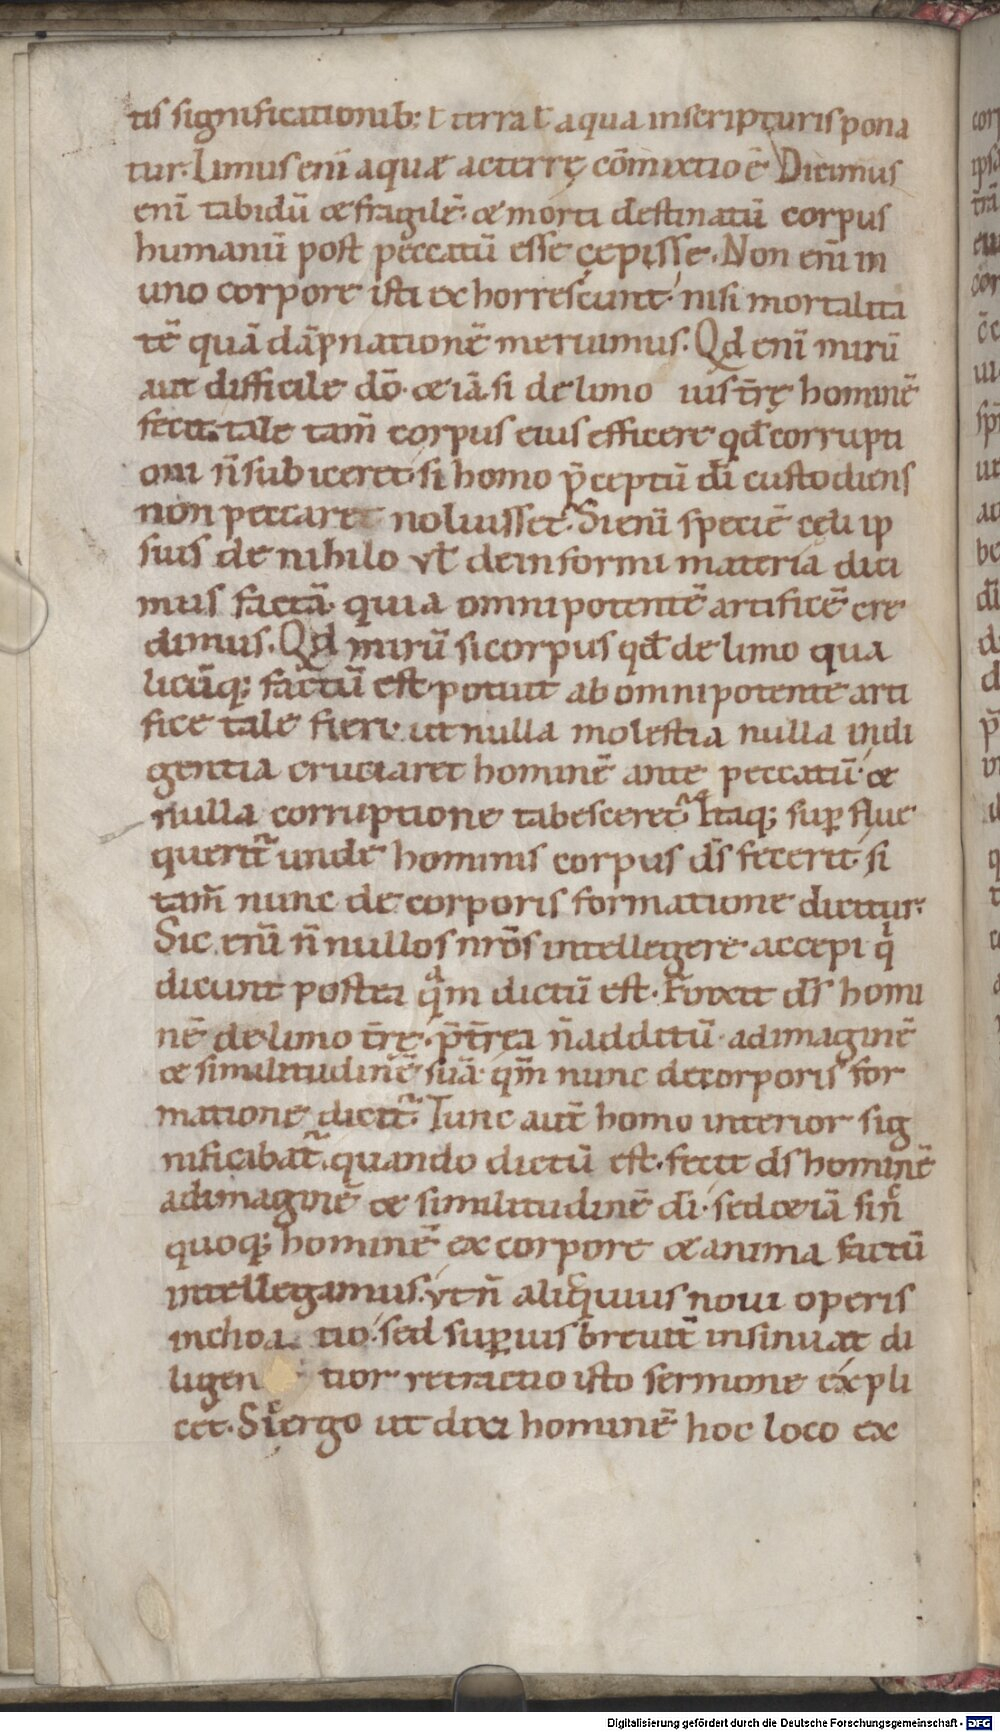 tis significationib; ł terra ł aqua inscripturis pona
tur. Limus enī aquæ acterrę cōmixtio ē Dicimus
enī tabidū & fragilē & morti destinatū corpus
humanū post peccatū esse cępisse. Non enī in
uno corpore isti exhorrescunt nisi mortalita
tē quā dāpnationē meruimus. Qd enī mirū
aut difficile dō & iā si delimo ius tr̄ę hominē
fecit. tale tam̄ corpus eius efficere qđ corrupti
oni n̄ subiceret. si homo p̄ceptū dī custodiens
non peccare noluisset. Si enī speciē cęli ip
sius de nihilo vł deinformi materia dici
mus factā. quia omnipotentē artificē cre
dimus. Qd mirū sicorpus qđ de limo qua
licūq; factū est. potuit ab omnipotente arti
fice tale fieri. ut nulla molestia nulla indi
gentia cruciaret hominē ante peccatū. &
nulla corruptione tabesceret. Itaq; sup̱ flue
querit̄ unde hominis corpus ds̄ fecerit. si
tam̄ nunc de corporis formatione dicitur.
Sic enī n̄nullos nr̄os intellegere accepi q̇
dicunt postea qm̄ dictū est. Finxit ds̄ homi
nē delimo tr̄ę. p̄tr̄ea n̄additū adimaginē
& similitudinē suā. qm̄ nunc decorporis for
matione dicit̄. Tunc aut̄ homo interior sig
nificabat̄. quando dictū est. fecit ds̄ hominē
adimaginē & similitudinē dī. sed&iā sin̄
quoq; hominē ex corpore & anima factū
intellegamus. vt n̄ alicuius noui operis
inchoa tio. sed sup̱ius breuit̄ insinuat di
ligen tior retractio isto sermone expli
cet. Si ergo ut dixi hominē hoc loco ex
Digitalisierung gefördert durch die Deutsche Forschungsgemeinschaft - DFG